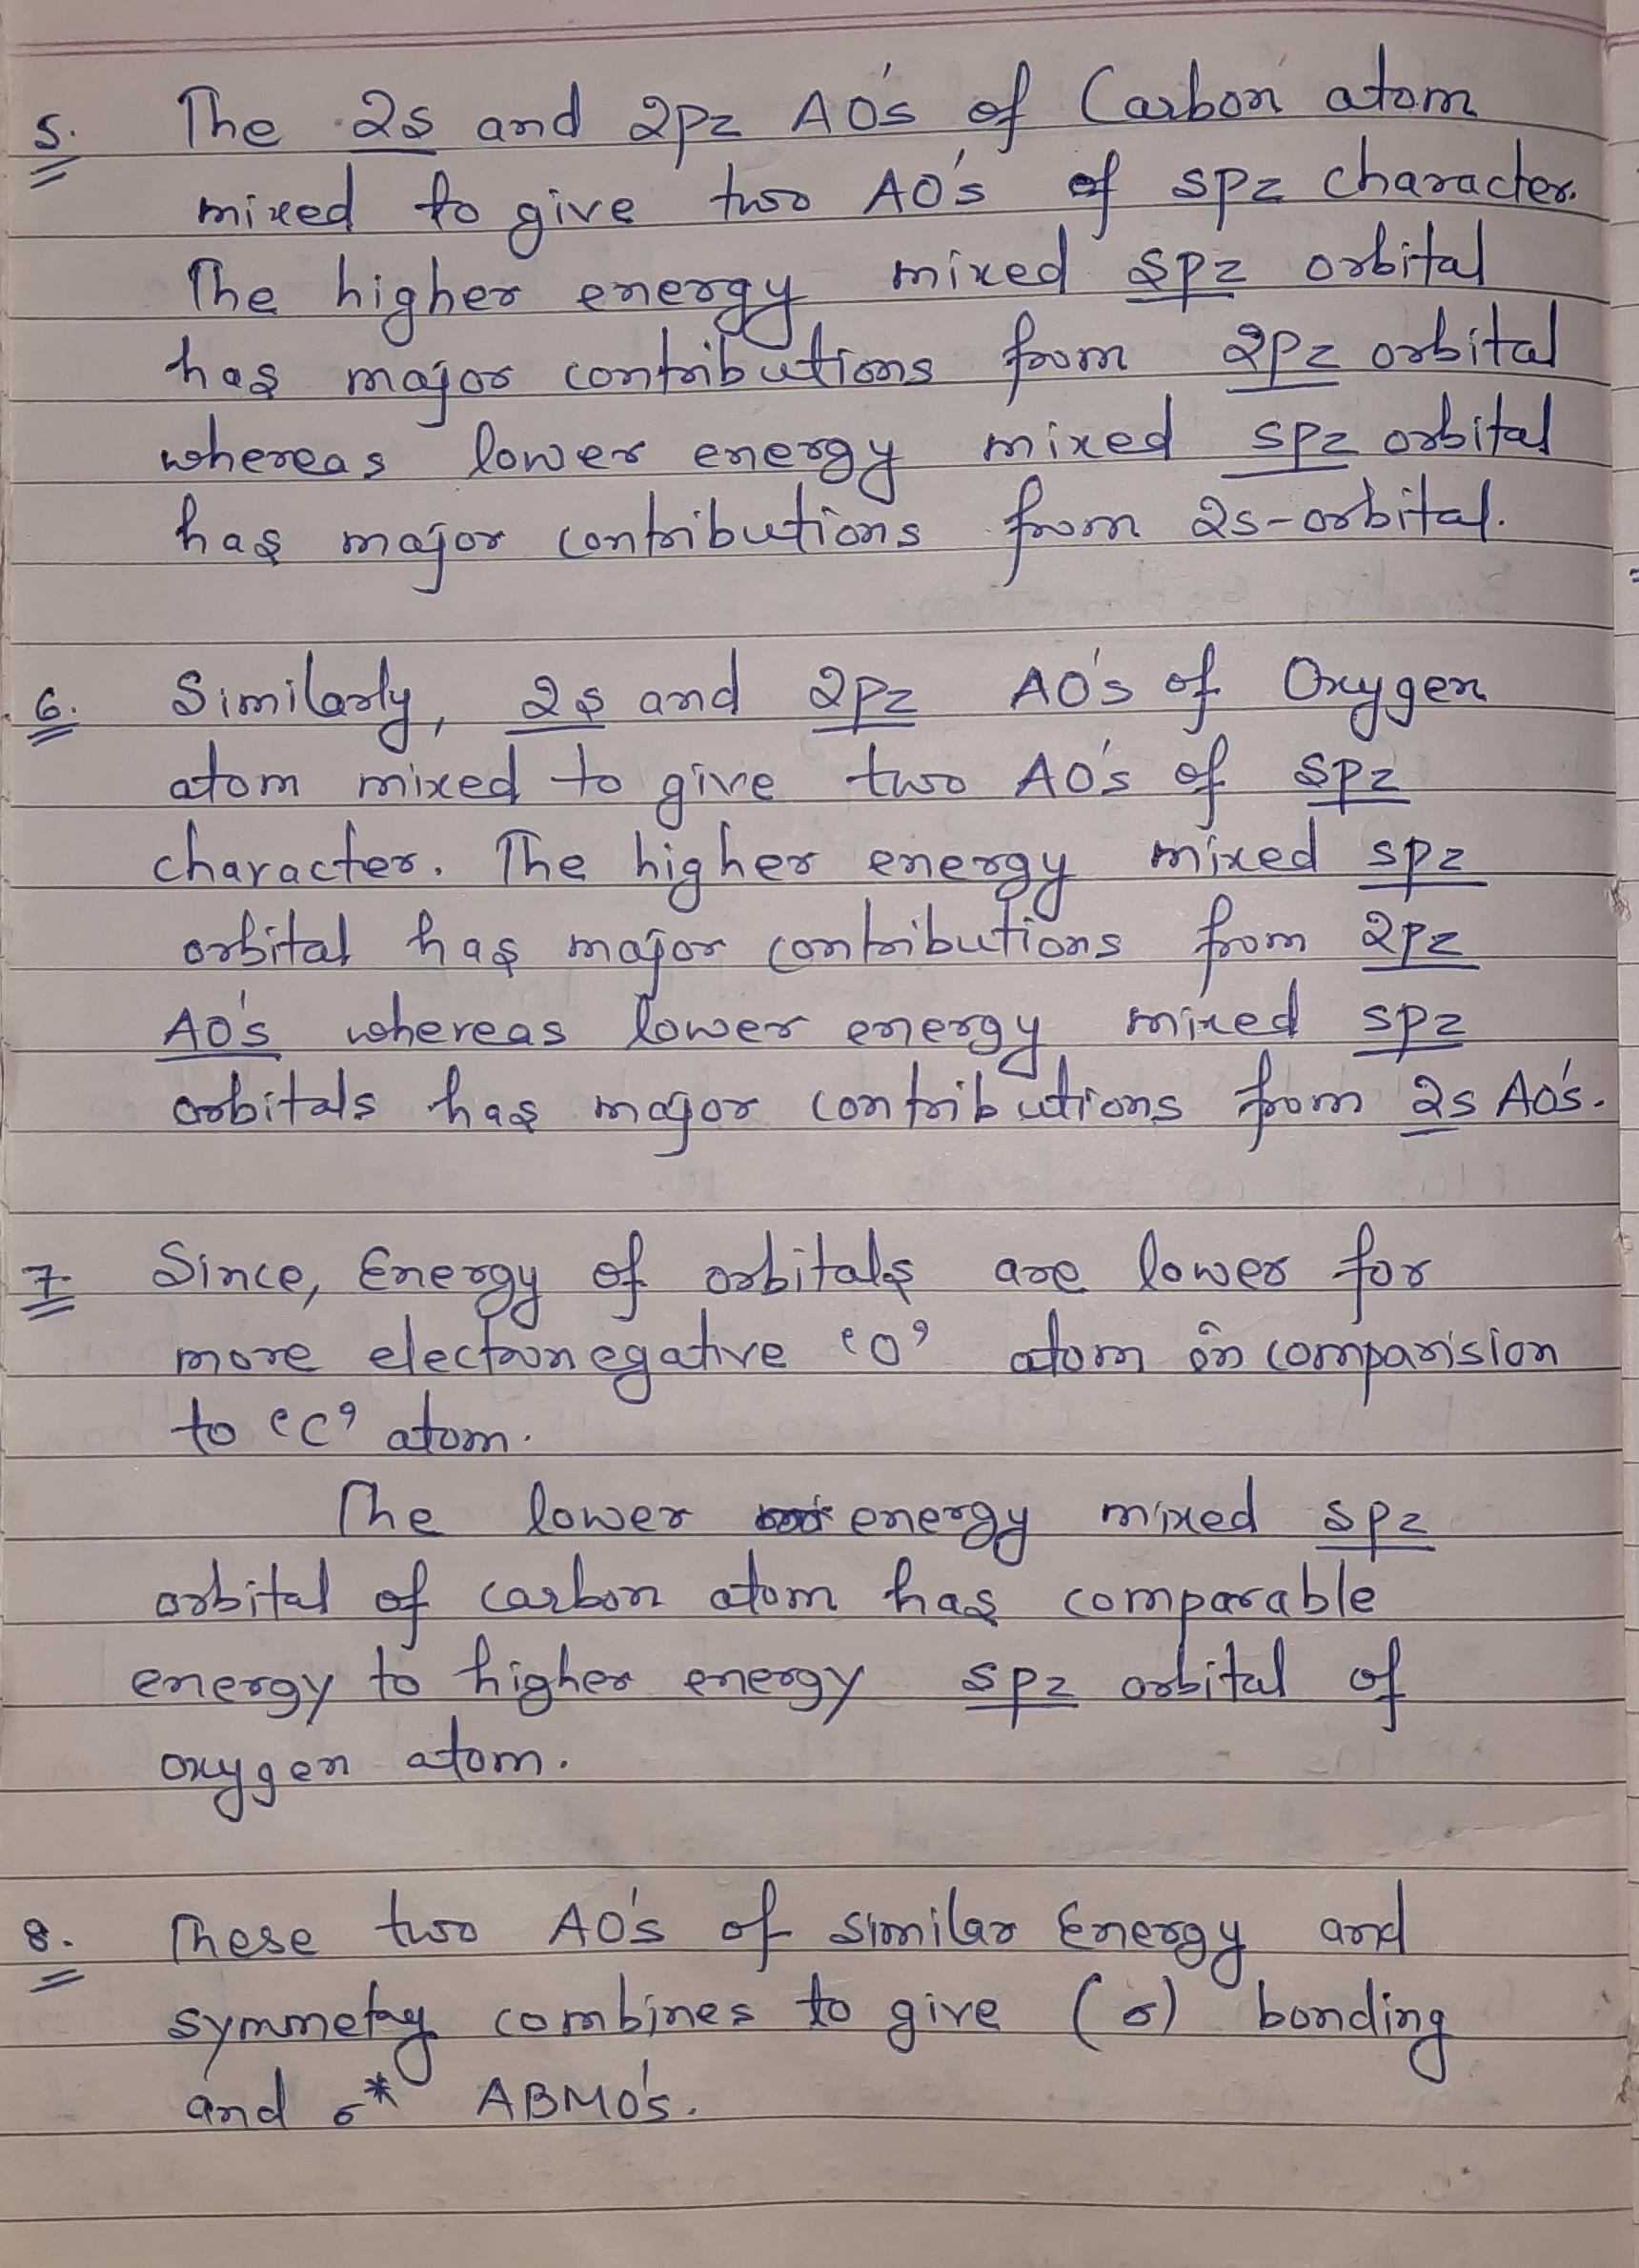 5. The 2s and 2pz AO's of Carbon atom
mixed to give two AO's of spz character.
The higher energy mixed spz orbital
has major contributions from 2pz orbital
whereas lower energy mixed spz orbital
has major contributions from 2s-orbital.
6. Similarly, 2s and 2pz AO's of Oxygen
atom mixed to give two AO's of spz
character. The higher energy mixed spz
orbital has major contributions from 2pz
AO's whereas lower energy mixed spz
orbitals has major contributions from 2s AO's.
7. Since, Energy of orbitals are lower for
more electronegative 'O' atom in comparision
to 'C' atom.
The lower energy mixed spz
orbital of carbon atom has comparable
energy to higher energy spz orbital of
oxygen atom.
8. These two AO's of similar Energy and
symmetry combines to give (σ) bonding
and σ* ABMO's.